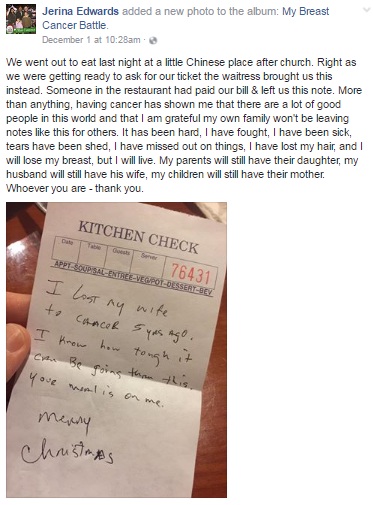 Jerina Edwards added a new photo to the album: My Breast
Cancer Battle.
December 1 at 10:28am ·
We went out to eat last night at a little Chinese place after church. Right as
we were getting ready to ask for our ticket the waitress brought us this
instead. Someone in the restaurant had paid our bill & left us this note. More
than anything, having cancer has shown me that there are a lot of good
people in this world and that I am grateful my own family won't be leaving
notes like this for others. It has been hard, I have fought, I have been sick,
tears have been shed, I have missed out on things, I have lost my hair, and I
will lose my breast, but I will live. My parents will still have their daughter, my
husband will still have his wife, my children will still have their mother.
Whoever you are - thank you.
KITCHEN CHECK
Date Table Guests Server
76431
APPT-SOUP/SAL-ENTREE-VEG/POT-DESSERT-BEV
I Lost my wife
to cancer 5 yrs ago.
I know how tough it
can Be going thru this.
your meal is on me.
Merry
Christmas